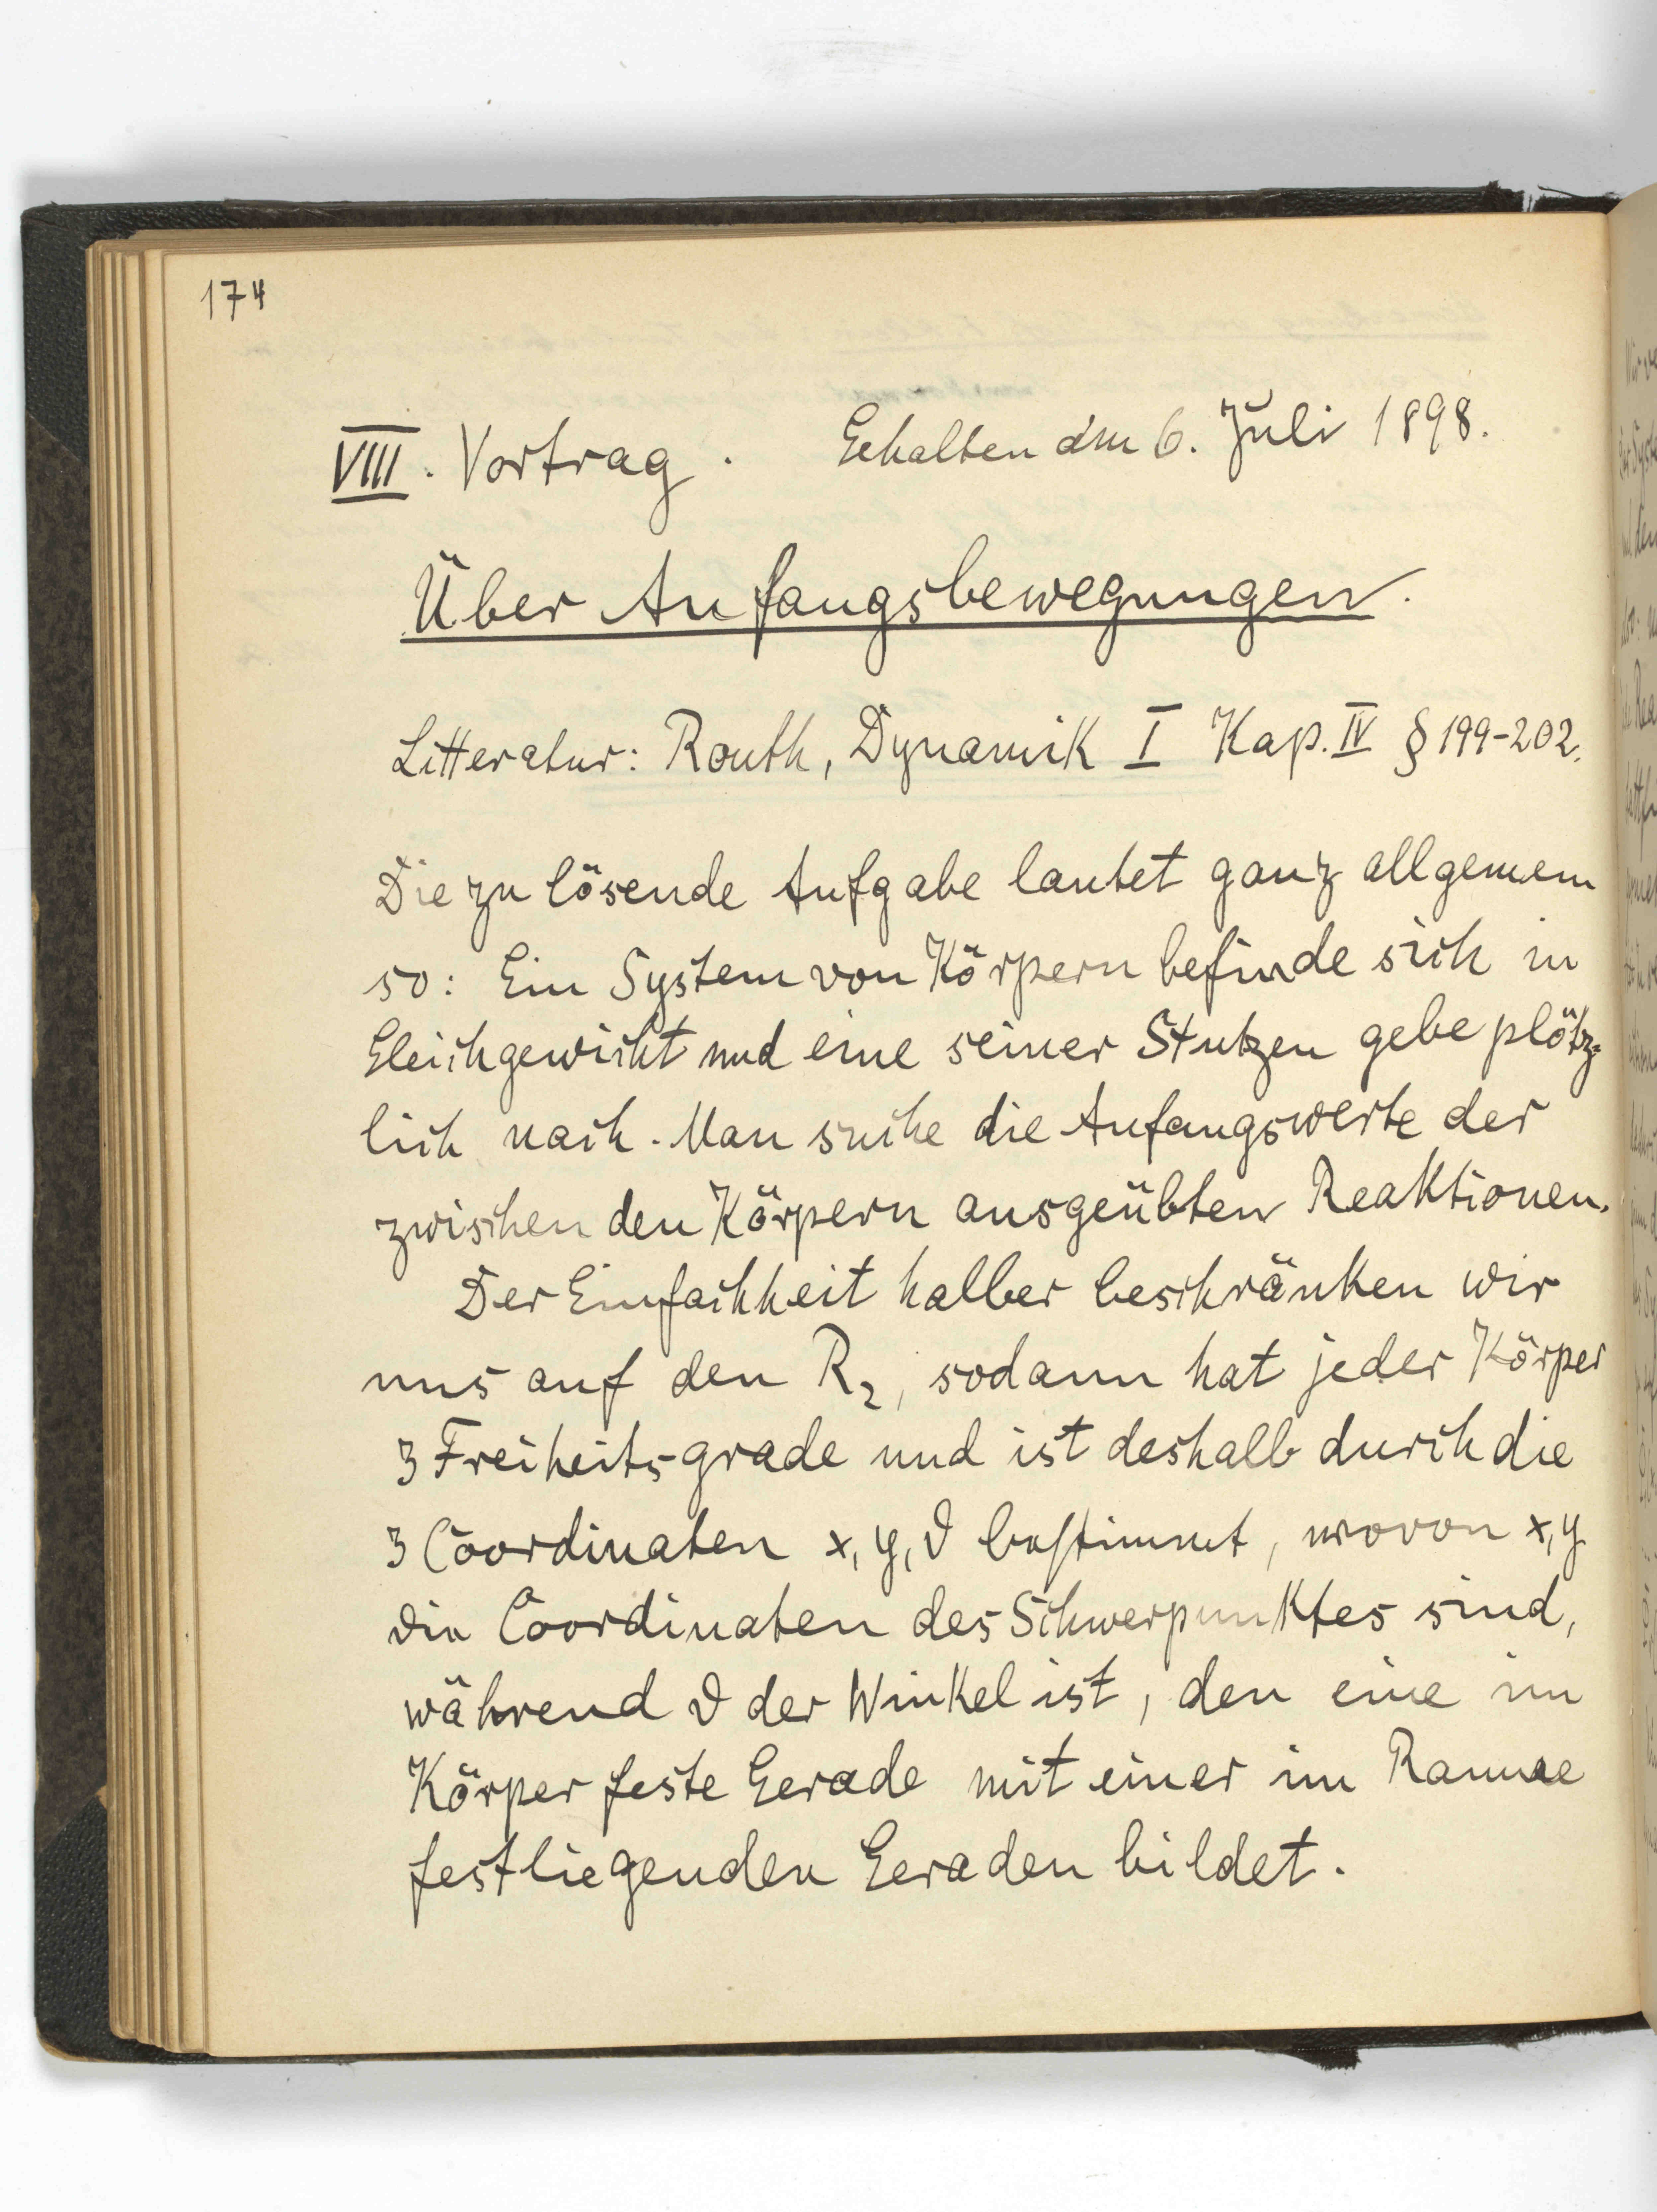 174
VIII. Vortrag. Gehalten am 6. Juli 1898.
Über Anfangsbewegungen.
Litteratur: Routh, Dynamik I Kap. IV § 199-202.
Die zu lösende Aufgabe lautet ganz allgemein
so: Ein System von Körpern befinde sich in
Gleichgewicht und eine seiner Stutzen gebe plötz-
lich nach. Man suche die Anfangswerte der
zwischen den Körpern ausgeübten Reaktionen.
Der Einfachheit halber beschränken wir
uns auf den R₂, sodann hat jeder Körper
3 Freiheitsgrade und ist deshalb durch die
3 Coordinaten x, y, ϑ bestimmt, wovon x, y
die Coordinaten des Schwerpunktes sind,
während ϑ der Winkel ist, den eine im
Körper feste Gerade mit einer im Raume
festliegenden Geraden bildet.